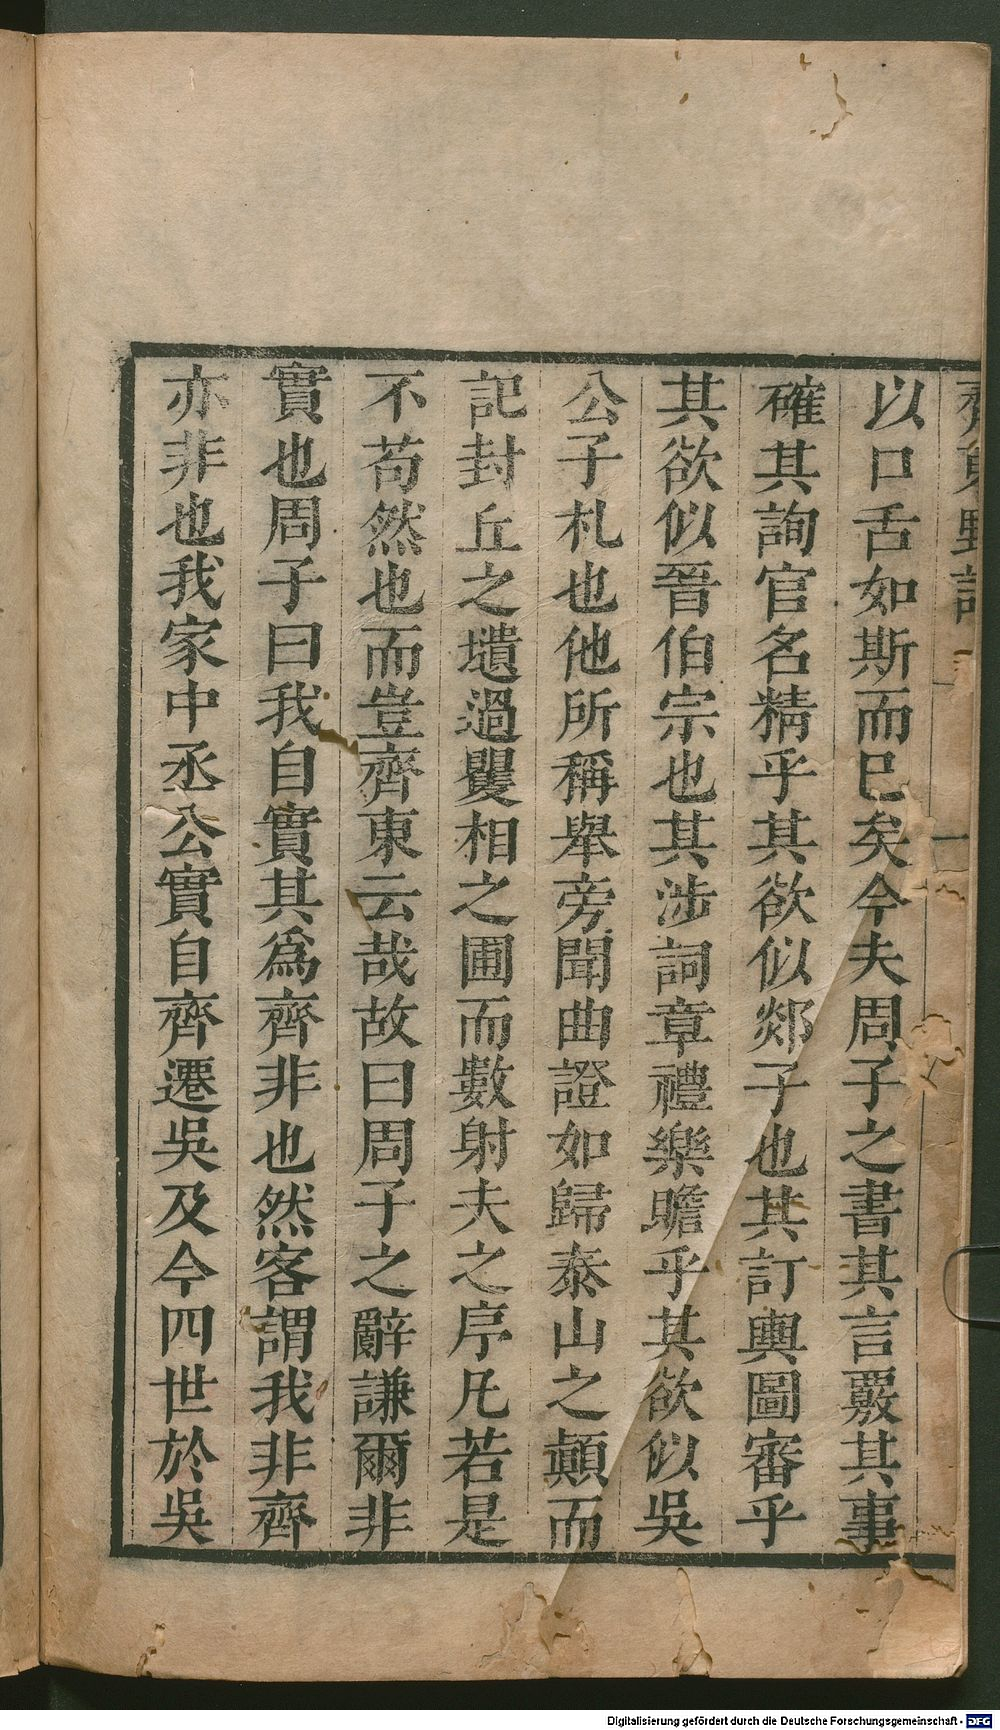 齊東野語
一
以口舌如斯而巳矣今夫周子之書其言覈其事
確其詢官名精乎其欲似郯子也其訂輿圖審乎
其欲似晉伯宗也其涉詞章禮樂贍乎其欲似吳
公子札也他所稱舉旁聞曲證如歸泰山之顛而
記封丘之壝過矍相之圃而數射夫之序凡若是
不苟然也而豈齊東云哉故曰周子之辭謙爾非
實也周子曰我自實其爲齊非也然客謂我非齊
亦非也我家中丞公實自齊遷吳及今四世於吳
Digitalisierung gefördert durch die Deutsche Forschungsgemeinschaft - DFG